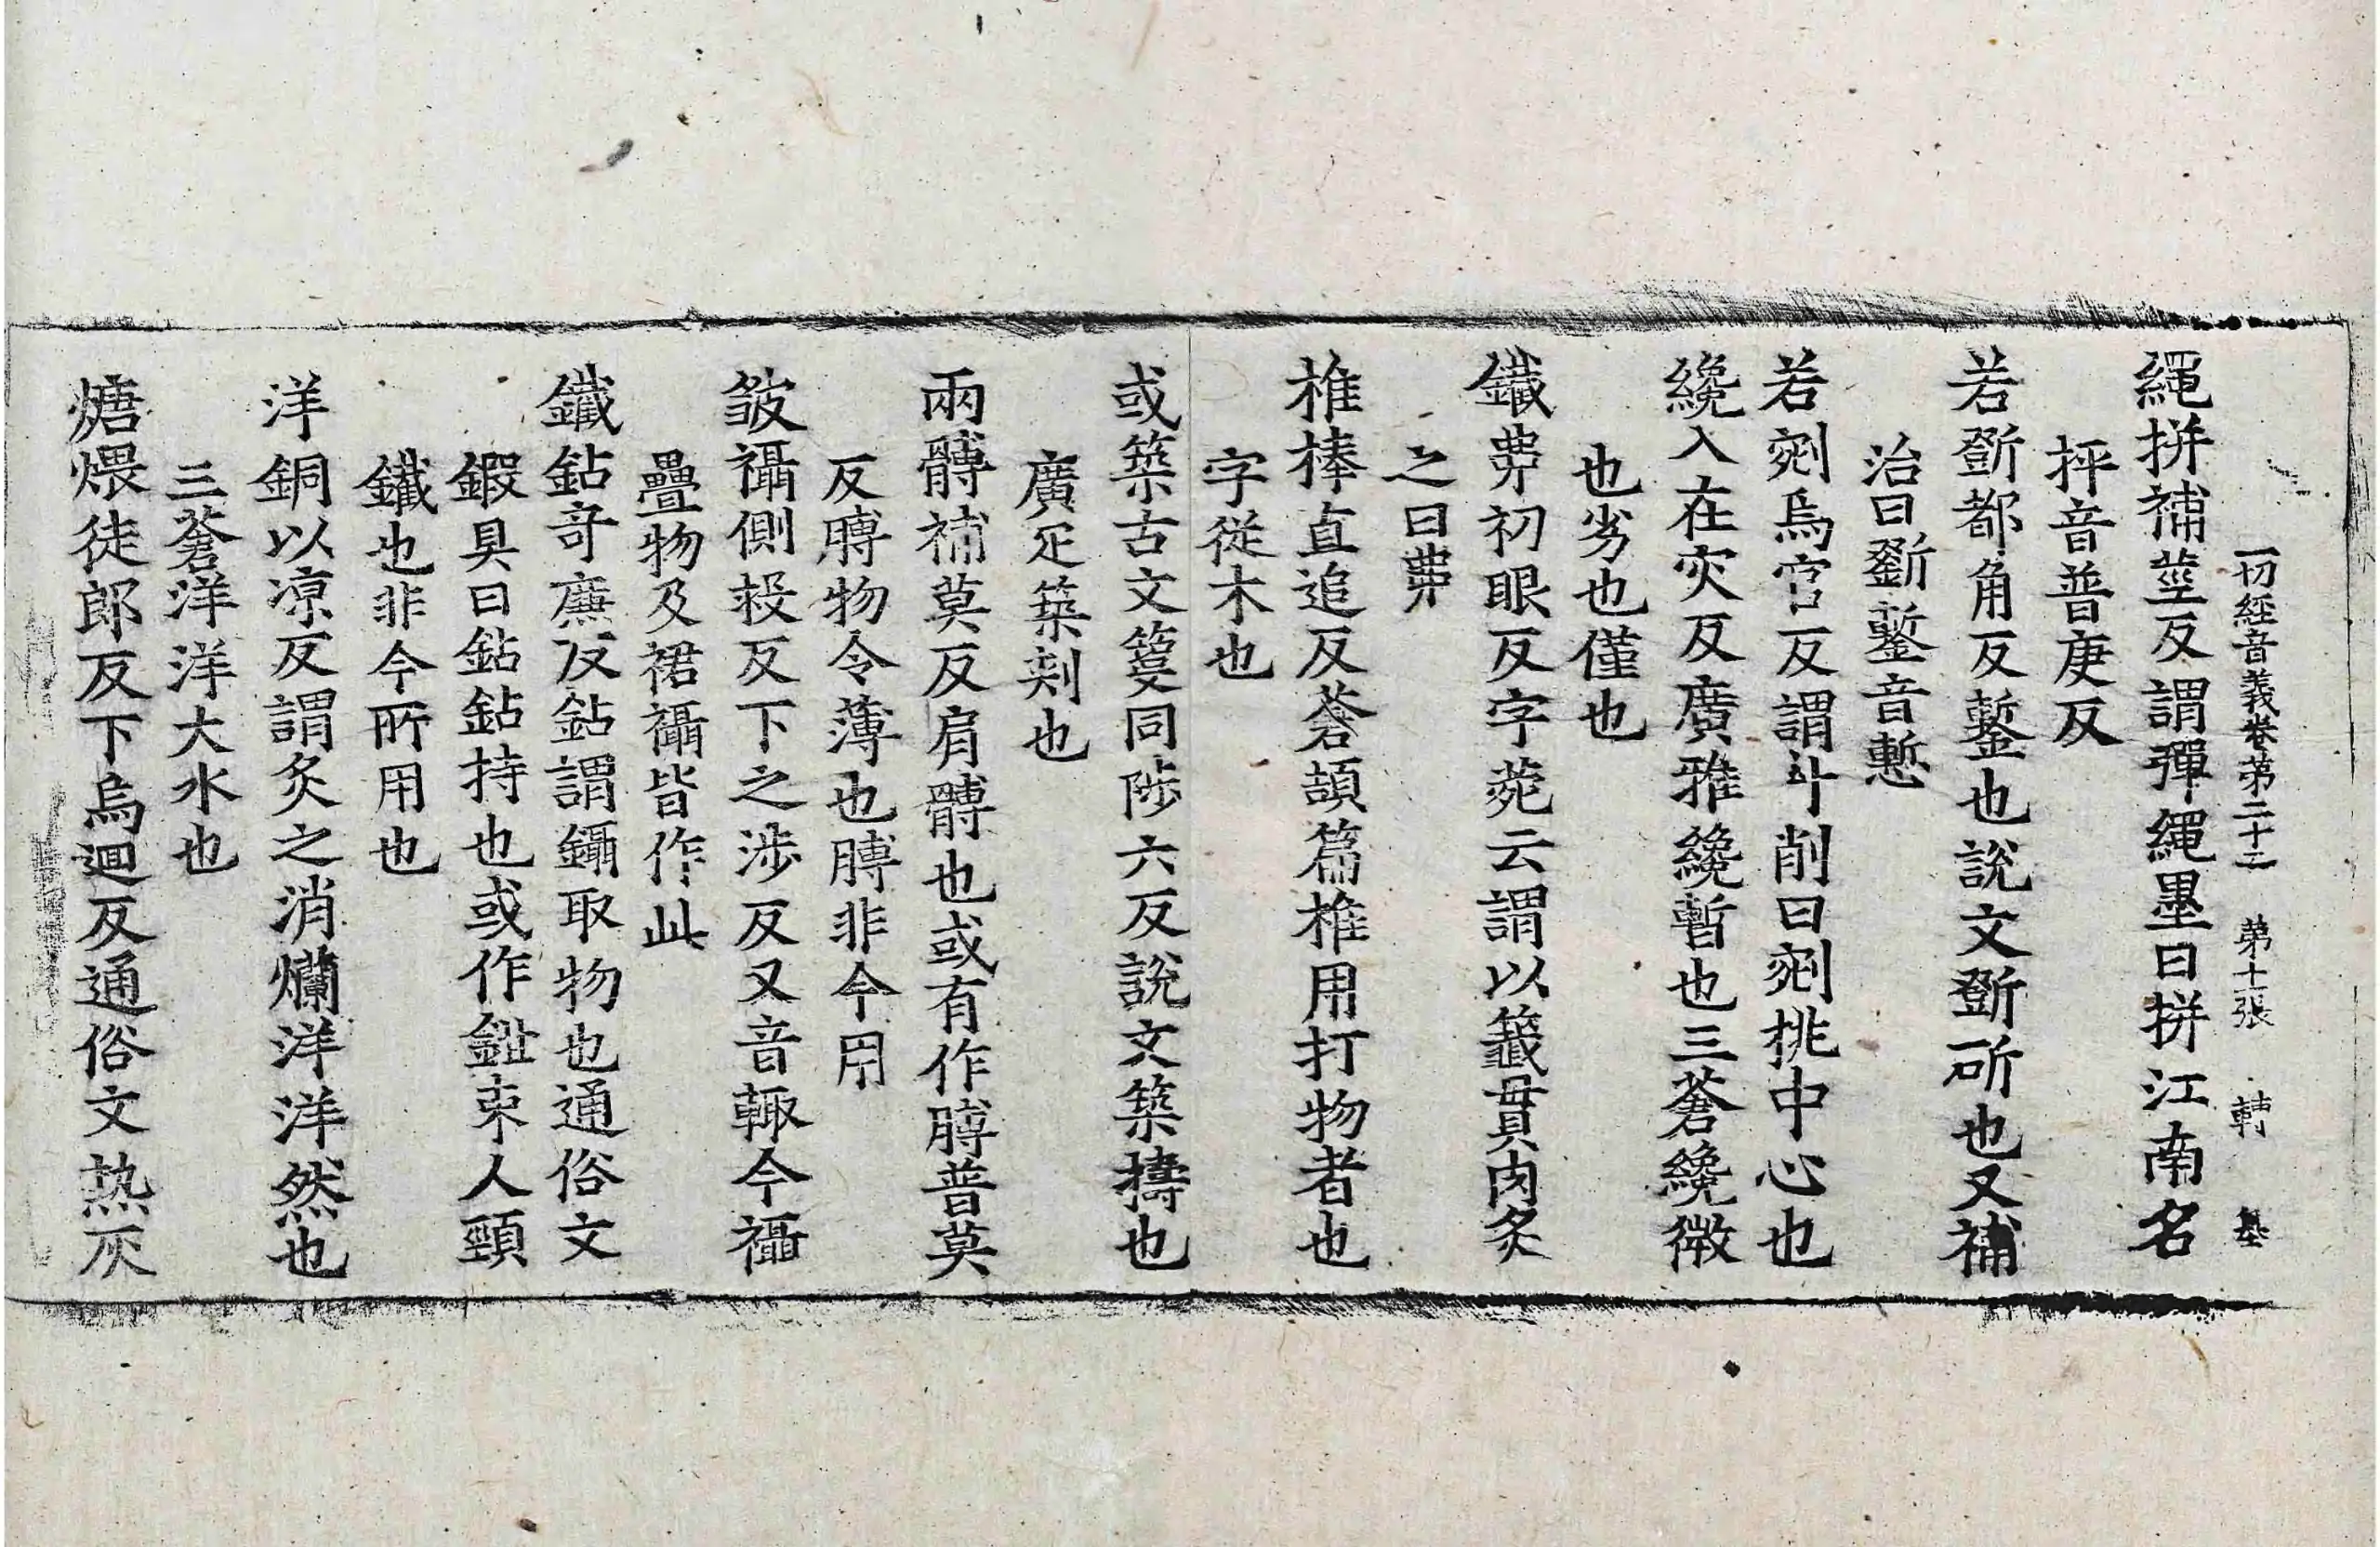 一切經音義卷第二十二 第十一張 轉 基
繩拼補莖反謂彈繩墨曰拼江南名
抨音普庚反
若斵都角反鏨也說文斵斫也又補
治曰斵鏨音慙
若剜烏官反謂斗削曰剜挑中心也
纔入在灾反廣雅纔暫也三蒼纔微
也劣也僅也
鐵丳初眼反字菀云謂以籤貫肉炙
之曰丳
椎棒直追反蒼頡篇椎用打物者也
字從木也
或築古文𥳑同陟六反說文築擣也
廣疋築刺也
兩髆補莫反肩髆也或有作膊普莫
反膊物令薄也膊非今用
皱襵側救反下之涉反又音輒今襵
疊物及裙襵皆作此
鐵鉆奇廉反鉆謂鑷取物也通俗文
鍜具曰鉆鉆持也或作鉗束人頸
鐵也非今所用也
洋銅以凉反謂炙之消爛洋洋然也
三蒼洋洋大水也
煻煨徒郎反下烏迴反通俗文热灰